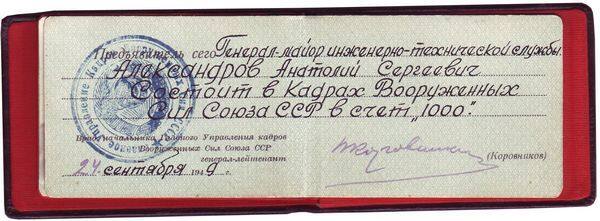 Предъявитель сего Генерал-майор инженерно-технической службы
Александров Анатолий Сергеевич
Состоит в Кадрах Вооруженных
Сил Союза ССР в счет „1000“.
Врид начальника Главного Управления кадров
Вооруженных Сил Союза ССР
генерал-лейтенант
(Коровников)
24 сентября 1949 г.